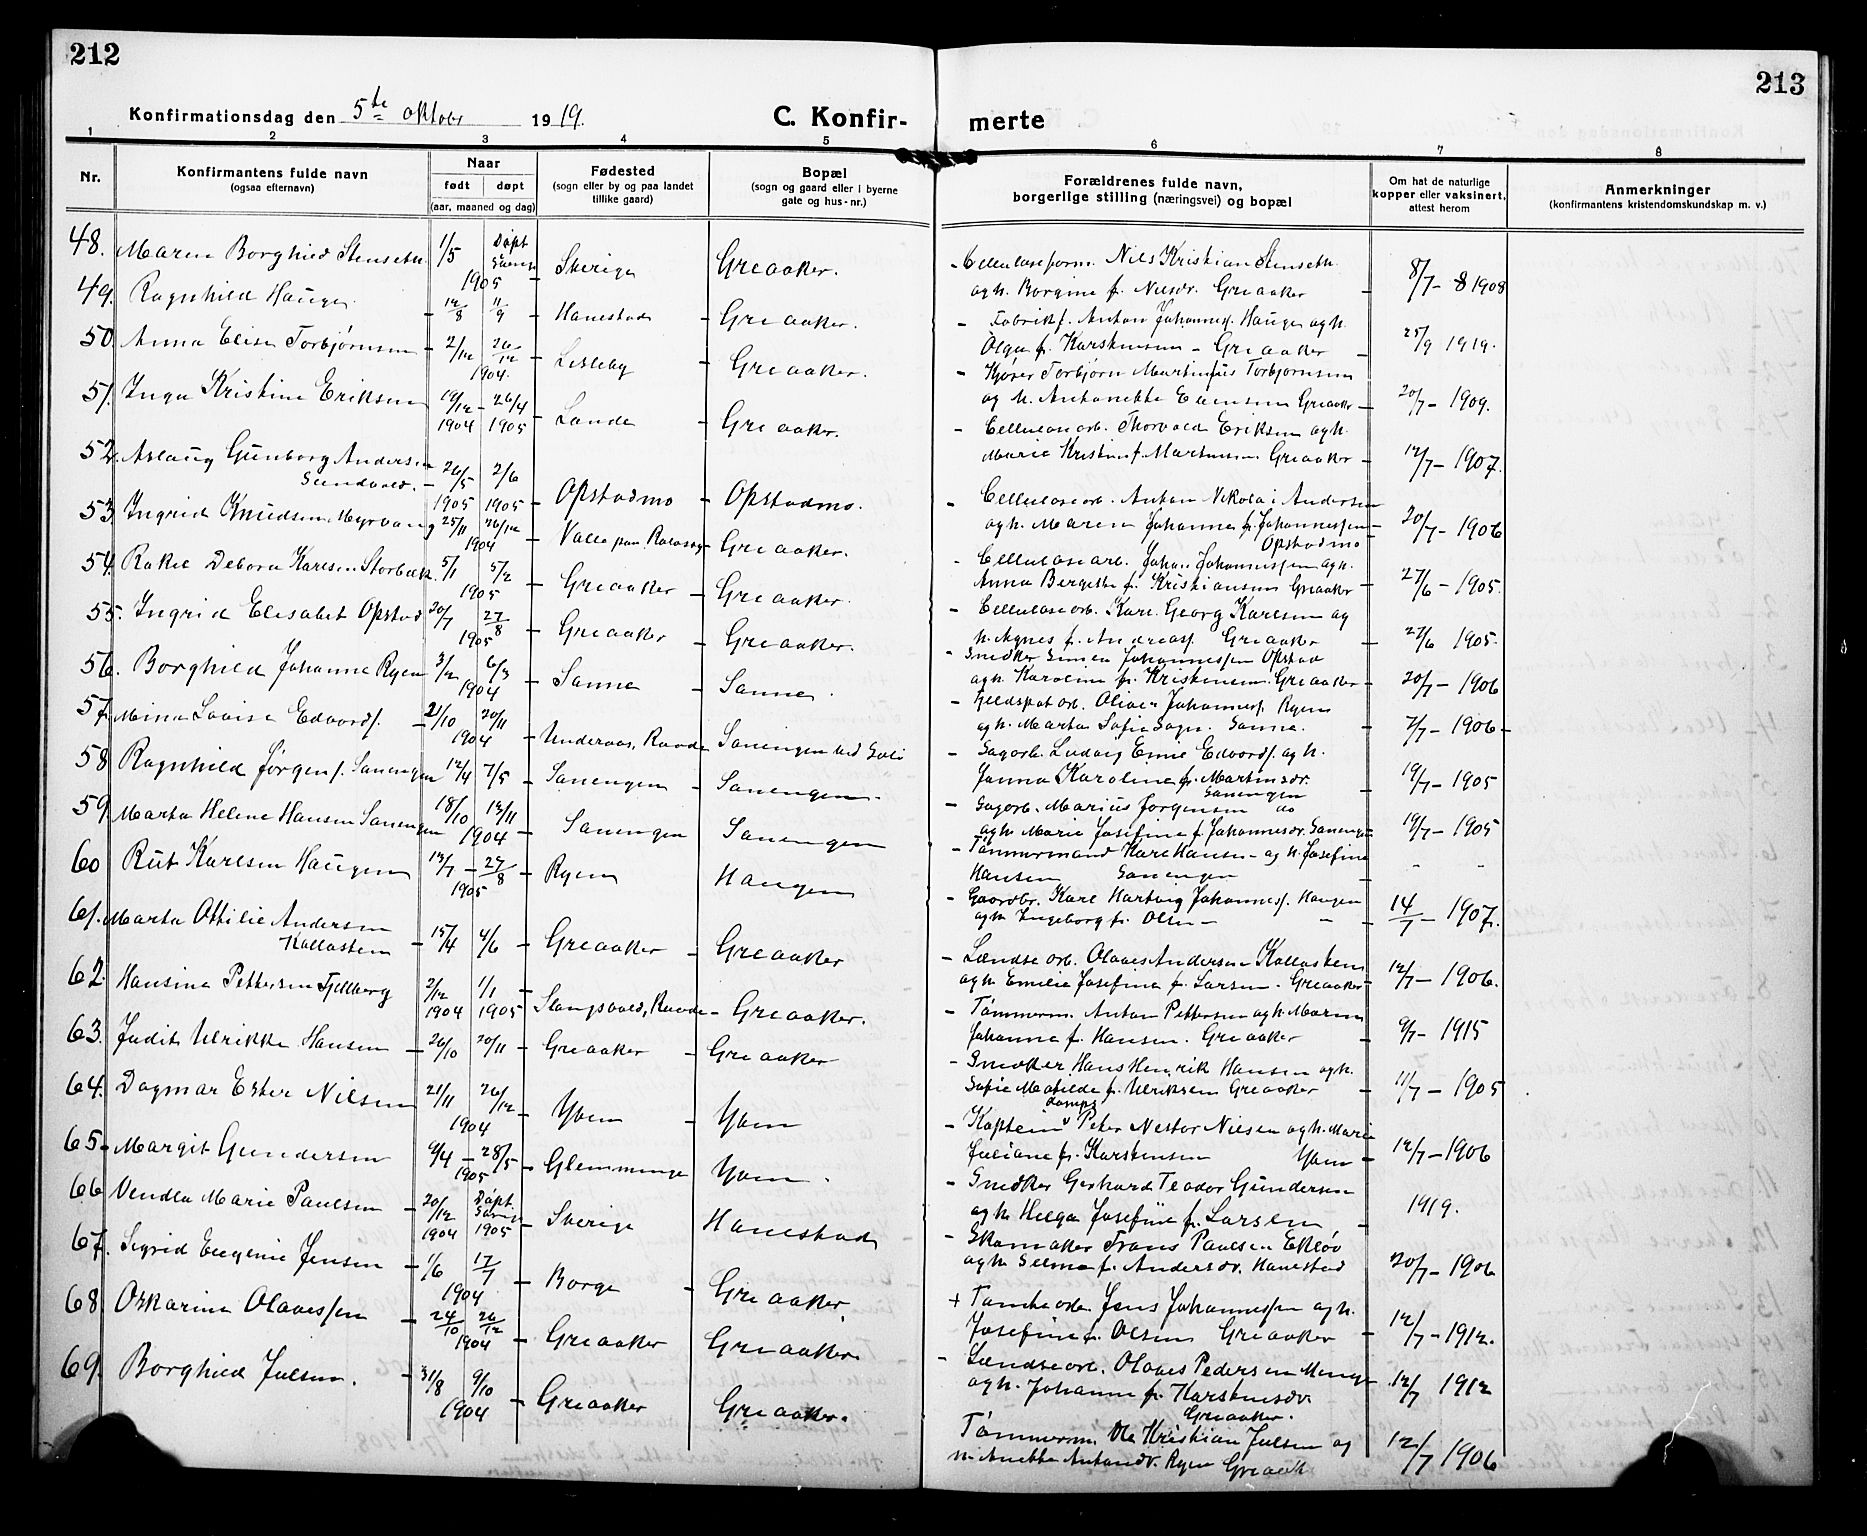 212
Konfirmationsdag den 5te oktobr 1919.
C. Konfir-
1 2 3 4 5
Nr.
Konfirmantens fulde navn
(ogsaa efternavn)
Naar
født døpt
(aar, maaned og dag)
Fødested
(sogn eller by og paa landet
tillike gaard)
Bopæl
(sogn og gaard eller i byerne
gate og hus-nr.)
48. Maren Borghild Stenseth 1/5 1905 Døpt Sverige Greaaker.
49. Ragnhild Haugen 14/8 11/9 Hanestad - Greaaker.
50. Anna Elise Torbjørnsen - 2/12 26/12 1904. - Lisleby - Greaaker.
51. Inga Kristine Eriksen 19/12 1904 - 26/4 1905 - Lande - Greaaker.
52. Aslaug Gunborg Andersen
Sundvold. - 26/5 1905 2/6 1905 - Opstadmo - Opstadmo.
53. Ingrid Knudsen Myrvang 25/11 26/12 1904 - Greaaker.
54. Rakel Debora Karlsen Storbæk. 5/1 5/2 1905 - Greaaker - Greaaker.
55. Ingrid Elisabet Opstad 20/7 27/8 1905 - Greaaker - Greaaker.
56. Borghild Johanne Ryen 3/12 6/3 1904 - Sanne - Sanne.
57. Mina Lovise Edvards. - 21/10 20/11 1904 - Underaas, Raade Sanengen
58 Ragnhild Jørgens. Sanengen 12/4 7/5 - Sanengen - Sanengen.
59. Marta Helene Hansen Sanengen 18/10 13/11 1904 - Sanengen Sanengen
60 Rut Karlsen Haugen 13/7 - 27/8 1905 - Ryen Haugen
61. Marta Ottilie Andersen
Kallasten - 15/4 4/6 - Greaaker - Greaaker
62. Hansina Pettersen Fjellberg 2/12 1904 1/1 1905 Slangsvold, Raade - Greaaker.
63. Judit Ulrikke Hansen - 26/10 20/11 - Greaaker - Greaaker
64. Dagmar Ester Nilsen 21/11 26/12 1904 - Yven - Yven
65. Margit Gundersen 9/4 - 28/5 1905 - Glemminge Yven.
66 Vendla Marie Paulsen - 20/12 1904 Døpt 1905 - Sverige Hanestad
67. Sigrid Eugenie Jensen - 1/6 17/7 1904 - Borge - Greaaker
68. Oskarine Olavessen - 24/10 26/12 1904 - Greaaker Greaaker
69. Borghild Julsen. - 31/8 9/10 1904 - Greaaker Greaaker.
213
merte
6 7 8
Forældrenes fulde navn,
borgerlige stilling (næringsvei) og bopæl
Om hat de naturlige
kopper eller vaksinert,
attest herom
Anmerkninger
(konfirmantens kristendomskundskap m. v.)
- Celluloseform. Nils Kristian Stenseth
og h. Borgine f. Nilsdr. Greaaker - 8/7 - 8 1908
- Fabrikf. Anton Johannes. Haugen og h.
Olga f. Karstensen - Greaaker - 25/9 1919.
- Kjører Torbjørn Martinius Torbjørnsen
og h. Antonette Greaaker - 20/7 - 1909.
- Cellulosearb. Thorvald Eriksen og h.
Marie Kristine f. Martinsen Greaaker - 12/7 - 1907.
- Cellulosearb. Anton Nikolai Andersen
og h. Maren Johanne f. Johannessen - 20/7 - 1906
Opstadmo
- Cellulosearb. Johan Johannessen og h.
Anna Bergette f. Kristiansen Greaaker - 27/6 - 1905.
- Cellulosearb. Karl Georg Karlsen og
h. Agnes f. Andreass. Greaaker - 27/6 1905.
- Snedker Simen Johannessen Opstad
og h. Karoline f. Kristensen. Greaaker - 20/7 - 1906
- Feldspatarb. Oliver Johanness. Ryen
og h. Marta Sofie Sanne. 7/7 - 1906 -
- Sagarb. Ludvig Emil Edvards. og h.
Janna Karoline f. Martinsdr.
Sanengen - 19/7 - 1905
- Sagarb. Marius Jørgensen do
og h. Marie Josefine f. Johannesdr. Sanengen 19/7 - 1905
- Tømmermand Karl Hansen - og h. Josefine
Hansen Sanengen - - -
- Gaardbr. Karl Hartvig Johanness. Haugen
og h. Ingeborg f. Olsen - - 14/7 - 1907.
- Lændsearb. Olaves Andersen Kallasten
og h. Emilie Josefine f. Larsen. Greaaker - 12/7 - 1906.
- Tømmerm. Anton Pettersen og h. Maren
Johanne f. Hansen. Greaaker - 9/7 - 1915
- Snedker Hans Henrik Hansen og h.
Sofie Matilde f. Ulriksen Greaaker - 11/7 - 1905
- Kaptein Peter Nestor Nilsen og h. Marie
Juliane f. Karstensen Yven - 12/7 - 1906
- Snedker Gerhard Teodor Gundersen
og h. Helga Josefine f. Larsen - 1919.
- Skomaker Frans Paulsen Ekløv
og h. Selma f. Andersdr. Hanestad 20/7 - 1906
+ Tomtearb. Jens Johannessen og h.
Josefine f. Olsen Greaaker - 12/7 - 1912.
- Lændsearb. Olaves Pedersen
og h. Johanne f. Karstensdr.
Greaaker. 12/7 1912
Tømmerm. Ole Kristian Julsen og
h. Anette Antondr. Ryen Greaak 12/7 1906